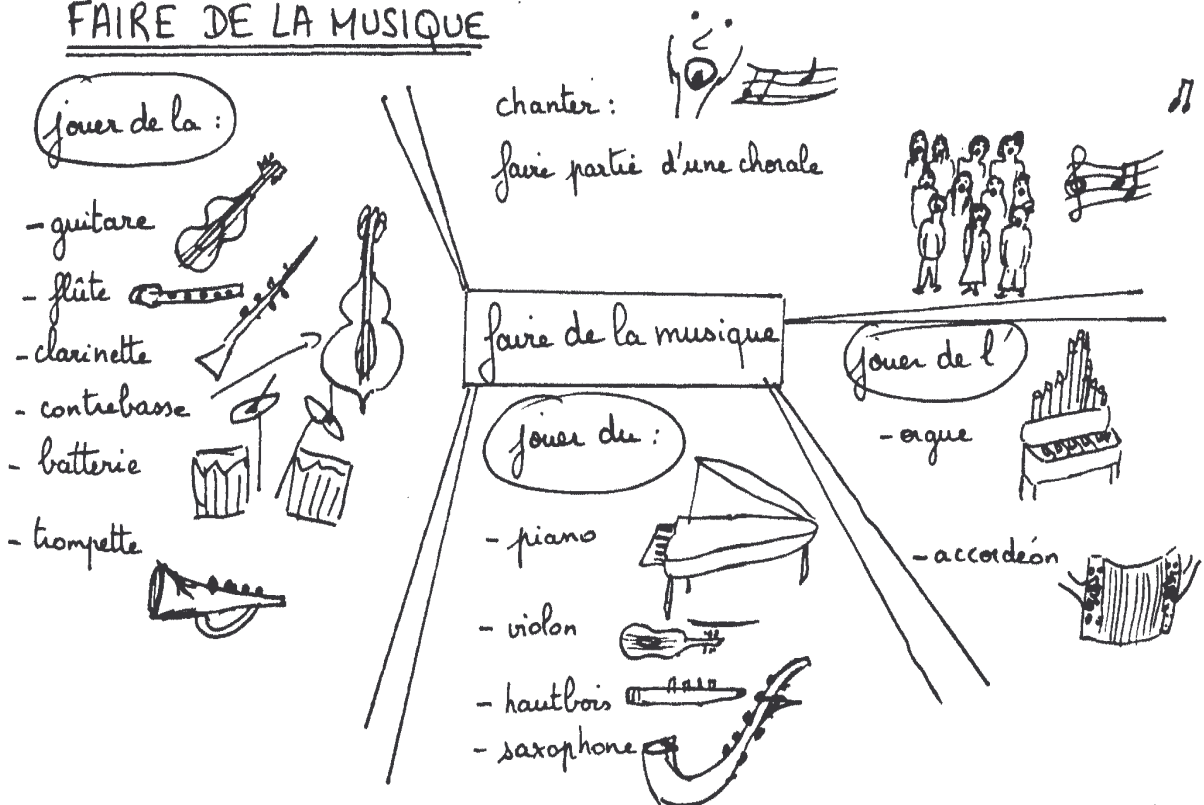 FAIRE DE LA MUSIQUE
jouer de la :
- guitare
- flûte
- clarinette
- contrebasse
- batterie
- trompette
chanter :
faire partie d'une chorale
faire de la musique
jouer du :
- piano
- violon
- hautbois
- saxophone
jouer de l'
- orgue
- accordéon